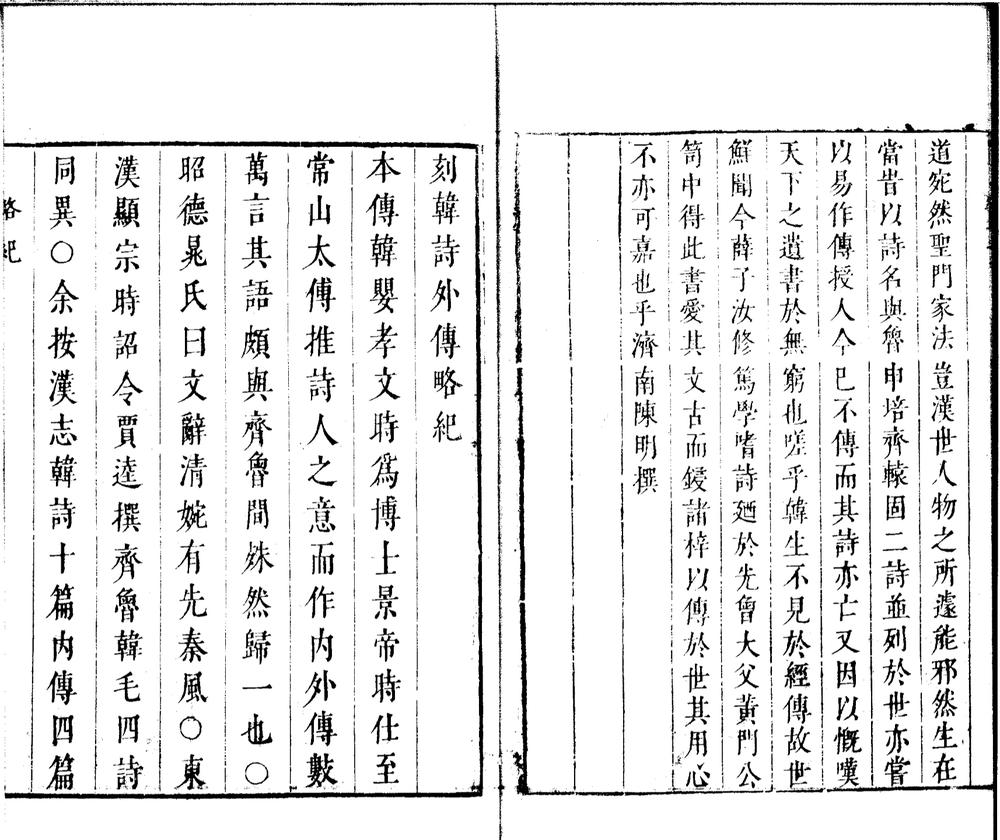 道宛然聖門家法豈漢世人物之所遽能邪然生在
當昔以詩名與魯申培齊轅固二詩並列於世亦嘗
以易作傳授人今已不傳而其詩亦亡又因以慨嘆
天下之遺書於無窮也嗟乎韓生不見於經傳故世
鮮聞今薛子汝修篤學嗜詩廼於先曾大父黃門公
笥中得此書愛其文古而鋟諸梓以傳於世其用心
不亦可嘉也乎濟南陳明撰
刻韓詩外傳略紀
本傳韓嬰孝文時爲博士景帝時仕至
常山太傅推詩人之意而作内外傳數
萬言其語頗與齊魯間殊然歸一也○
昭德晁氏曰文辭清婉有先秦風○東
漢顯宗時詔令賈逵撰齊魯韓毛四詩
同異○余按漢志韓詩十篇内傳四篇
略紀